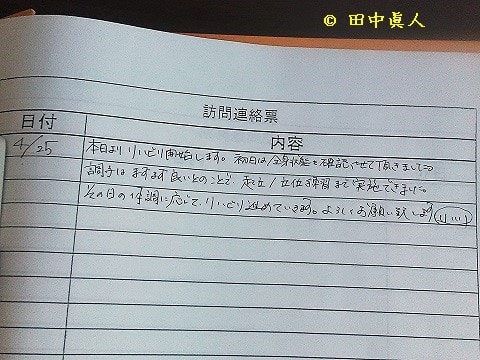 © 田中眞人
訪問連絡票
日付 内容
4/25 本日よりリハビリ開始します。初日は全身状態を確認させて頂きました。
調子はまずまず良いとのことで、起立/立位練習まで実施できました。
その日の体調に応じて、リハビリ進めていきます。よろしくお願い致します